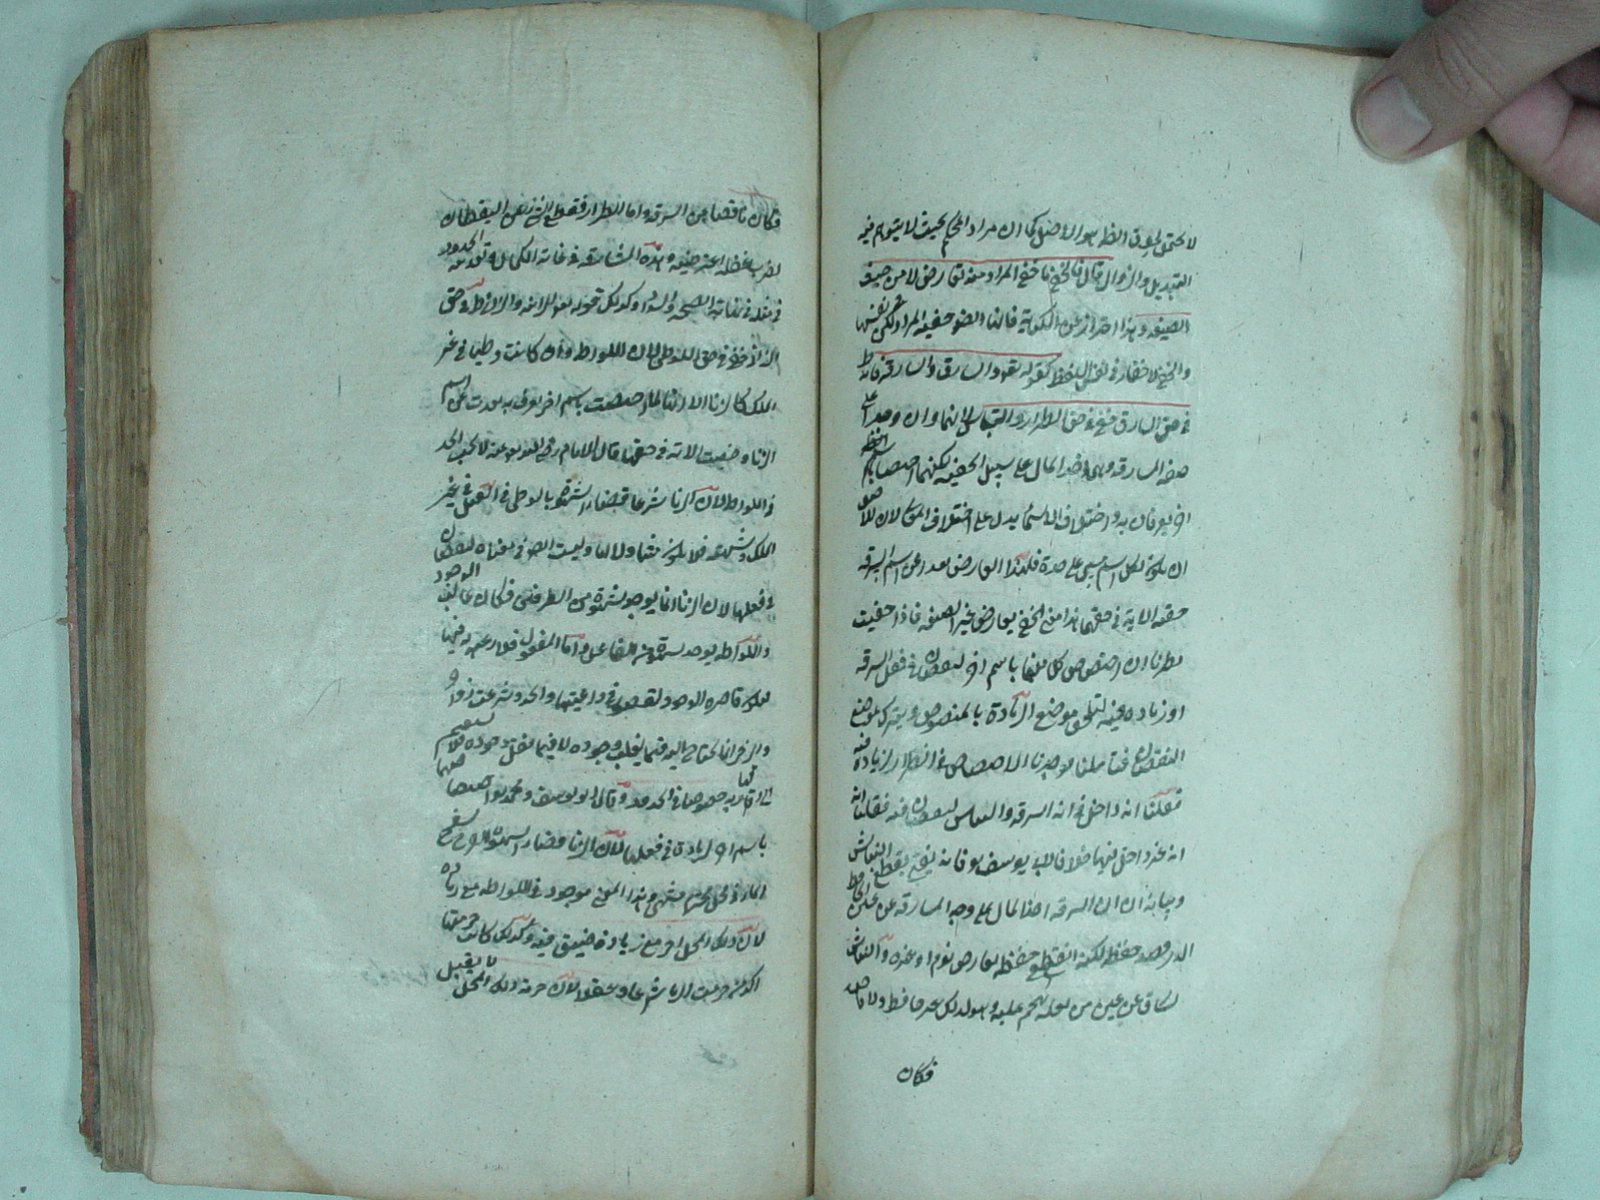 لا يحتمل طرق الظهور الاصل كما ان مراد المحكم بحيث لا يتوهم فيه
التبديل والزوال قال فالخفي ما خفي المراد منه بعارض لا من حيث
الصيغة وهذا احتراز عن فالنا المراد لكن نفسها
والخفي لا خفاء في نفس اللفظ كقوله تعالى والسارق والسارقة فانه ظ
في حق السارق خفي في حق الطرار والنباش لانهما وان وجد
صفة المسارقة وهي اخذ المال على سبيل الخفية لكنهما اختصا باسم
اخر يعرفان به واختلاف الاسماء يدل على اختلاف المعنى لان الاصل
ان يكون لكل اسم مسمى على حدة فلهذا العارض بعدا عن اسم السرقة
خفيت الاية في حقهما هذا معنى الخفي بعارض غير الصيغة فاذا خفيت
نظرنا ان اختصاص كل منهما باسم اخر لنقصان في فعل السرقة
او زيادة فيه ليلحق موضع الزيادة بالمنصوص ويترك موضع
النقصان فتاملنا فوجدنا الاختصاص في الطرار لزيادة فيه
فقلنا انه داخل في اية السرقة والنباش لنقصان فيه فقلنا انه
انه غير داخل فيها خلافا لابي يوسف فانه يقطع النباش
وبيانه ان السرقة اخذ المال على وجه المسارقة عن عين الحافظ
الذي قصد حفظه لكنه انقطع حفظه بعارض نوم او غيره والنباش
يسارق عن عين من لعله يهجم عليه وهو لذلك غير حافظ ولا قاصد
فكان
فكان ناقصا من السرقة واما الطرار فقطع الشيء عن اليقظان
بضرب غفلة اعترضته وهذه المسارقة في غاية الكمال وتعدية الحدود
في مثله في نهاية الصحة وكذلك قوله تعالى الزانية والزاني ظ في حق
الزاني خفي في حق اللوطي لان اللواط وان كانت وطيا في غير
الملك كالزنا الا انها لما اختصت باسم اخر يعرف به بعدت عن اسم
الزنا وخفيت الاية في حقها قال الامام رضي الله عنه لا يجب الحد
في اللواط لان الزنا شرعا قضاء الشهوة بالوطي في القبل في غير
الملك وشبهته فلا يكون متناولا لها وليست ايضا في معناه لنقصان
في فعلها لان الزنا انما يوجد بشهوة من الطرفين فكان غالب الوجود
واللواطة يوجد بشهوة من الفاعل واما المفعول فلا رغبة له فيها
فيكون قاصرة الوجود لقصور في داعيتها والحدود شرعت زواجر
والزجر انما يحتاج اليه فيما يغلب وجوده لا فيما يقل وجوده فلا يستقيم
الحاقها به خصوصا في الحدود وقال ابو يوسف ومحمد اختصاصهما
باسم اخر لزيادة في فعلها لان الزنا قضاء الشهوة بسفح
الماء في محل محرم مشتهى وهذا المعنى موجود في اللواطة مع زيادة
لان ذلك المحل احر مع زيادة ضيق فيه وكذلك كانت حرمتها
اكد من حرمة الزنا شرعا وعقلا لان حرمة ذلك المحل لا يقبل